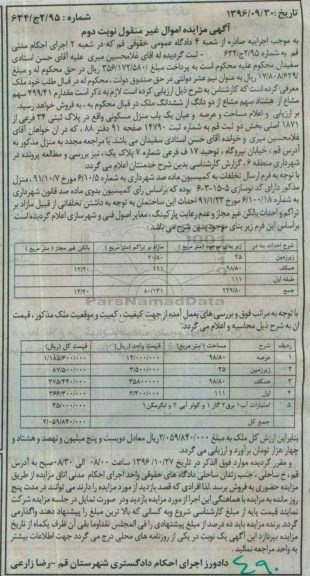 تاریخ: ۱۳۹۶/۰۹/۳۰ شماره: ۲/۹۵ج/۶۳۴
آگهی مزایده اموال غیر منقول نوبت دوم
به موجب اجراییه صادره از شعبه ۴ دادگاه عمومی حقوقی قم که در شعبه ۲ اجرای احکام مدنی
قم به شماره ۲/۹۵ج/۶۳۴ - ثبت گردیده له آقای غلامحسین میری علیه آقای حسن استادی
سفیدان محکوم علیه محکوم است به پرداخت مبلغ ۳۵۶/۱۷۲/۵۸۰ ریال در حق محکوم له و مبلغ
۱۷/۸۰۸/۶۲۹ ریال به عنوان نیم عشر دولتی در حق صندوق دولت، محکوم له در قبال طلب خود ملک
معرفی کرده است که کارشناس به شرح ذیل ارزیابی کرده است لازم به ذکر است مقدار ۴۹۹/۴۱ سهم
مشاع از هشتاد سهم مشاع از دو دانگ از ششدانگ ملک در قبال محکوم به ، به فروش خواهد رسید.
بر ارزیابی و اعلام مساحت و عرصه و عیان یک باب منزل مسکونی واقع در پلاک ثبتی ۲۴ فرعی از
۱۸۷۱ اصلی بخش دو ثبت قم به شماره ثبت ۱۴۷۹۰ صفحه ۹۱ دفتر ۸۸ ، که در آن خواهان آقای
غلامحسین میری و خوانده آقای حسن استادی سفیدان می باشد، با مراجعه مجدد به منزل مذکور به
آدرس قم ، خیابان نیروگاه ، توحید ۱۷ دی فرعی شماره ۲، پلاک یک، نیز بررسی و مطالعه پرونده در
شهرداری منطقه ۶، گزارش کارشناسی بدین شرح خدمتتان اعلام می گردد:
با توجه به فرم ارسال تخلفات به کمیسیون ماده صد شهرداری به شماره ۶/۱۰/۵ مورخ ۹۱/۱۰/۷، منزل
مذکور دارای کد نوسازی ۵-۱۵-۳-۶ بوده که براساس رای کمیسیون بدوی ماده صد قانون شهرداری
به شماره ۶/۱۰۰/۱۸ مورخ ۹۱/۱/۲۳ احداث این ساختمان به توجه به داشتن تخلفاتی از قبیل مازاد بر
تراکم و احداث بالکن غیر مجاز و عدم رعایت پارکینگ ، مغایر اصول فنی و شهرسازی اعلام گردیده است
براساس این فرم زیر بنای موجود بدین شرح می باشد:
شرح احداث بنا در | زیر بنای موجود (متر مربع) | مازاد بر تراکم (متر مربع) | بالکن غیر مجاز (متر مربع)
زیرزمین | ۲۵ | ۲۰/۸۰
همکف | ۹۸/۸۰ | ۱۱۱ | ۱۲/۲۰
طبقه اول | ۱۱۱
جمع | ۲۴۹/۸۰ | ۸۰/۱۳۱ | ۱۲/۲۰
با توجه به مراتب فوق و بررسی های بعمل آمده از جهت کیفیت، کمیت و موقعیت ملک مذکور ، قیمت
آن به شرح ذیل محاسبه و اعلام می گردد:
ردیف | شرح | مساحت (متر مربع) | قیمت واحد (ریال) | قیمت کل (ریال)
۱ | عرصه | ۹۸/۸۰ | ۱۲/۰۰۰/۰۰۰ | ۱/۱۸۵/۶۰۰/۰۰۰
۲ | زیرزمین | ۲۵ | ۳/۵۰۰/۰۰۰ | ۸۷/۵۰۰/۰۰۰
۳ | همکف | ۹۸/۸۰ | ۳۵۸۰۰۰۰۰ | ۳۷۵/۴۴۰/۰۰۰
۴ | اول | ۱۱۱ | ۳/۳۰۰/۰۰۰ | ۳۶۶/۳۰۰/۰۰۰
۵ | امتیازات آب ۱ برق ۲ گاز ۱ و کولر آبی ۲ و آبگرمکن ۱ | ۴۵/۰۰۰/۰۰۰
جمع کل | ۲/۰۵۹/۸۴۰/۰۰۰
بنابراین ارزش کل ملک به مبلغ ۲/۰۵۹/۸۴۰/۰۰۰ ریال معادل دویست و پنج میلیون و نهصد و هشتاد و
چهار هزار تومان برآورد و ارزیابی می گردد.
و مقرر گردیده موارد فوق الذکر در تاریخ ۱۳۹۶/۱۰/۲۷ ساعت ۰۸/۰۰ الی ۰۸/۳۰ صبح به آدرس
قم ، خ ساحلی ، جنب زندان ساحلی دادگاه های حقوقی واحد اجرای احکام مدنی اتاق مزایده از طریق
مزایده حضوری به فروش برسد. لذا افرادی که قصد بازدید از مورد مزایده را دارند می توانند در مدت پنج
روز مانده به مزایده با هماهنگی این اجرا از مورد مزایده بازدید و در صورت تمایل در جلسه مزایده شرکت
نمایند. قیمت پایه از مبلغ کارشناسی شروع و به کسانی که بالا ترین مبلغ را پیشنهاد دهند واگذار می
گردد. برنده مزایده باید ده درصد از مبلغ پیشنهادی را فی المجلس نقدا و مابقی آن ظرف یکماه از تاریخ
مزایده بپردازد. این آگهی یک نوبت در یکی از روزنامه های محلی درج می گردد جهت اطلاعات بیشتر
به واحد مراجعه نمائید.
دادورز اجرای احکام دادگستری شهرستان قم – رضا زارعی
ParsNamadData